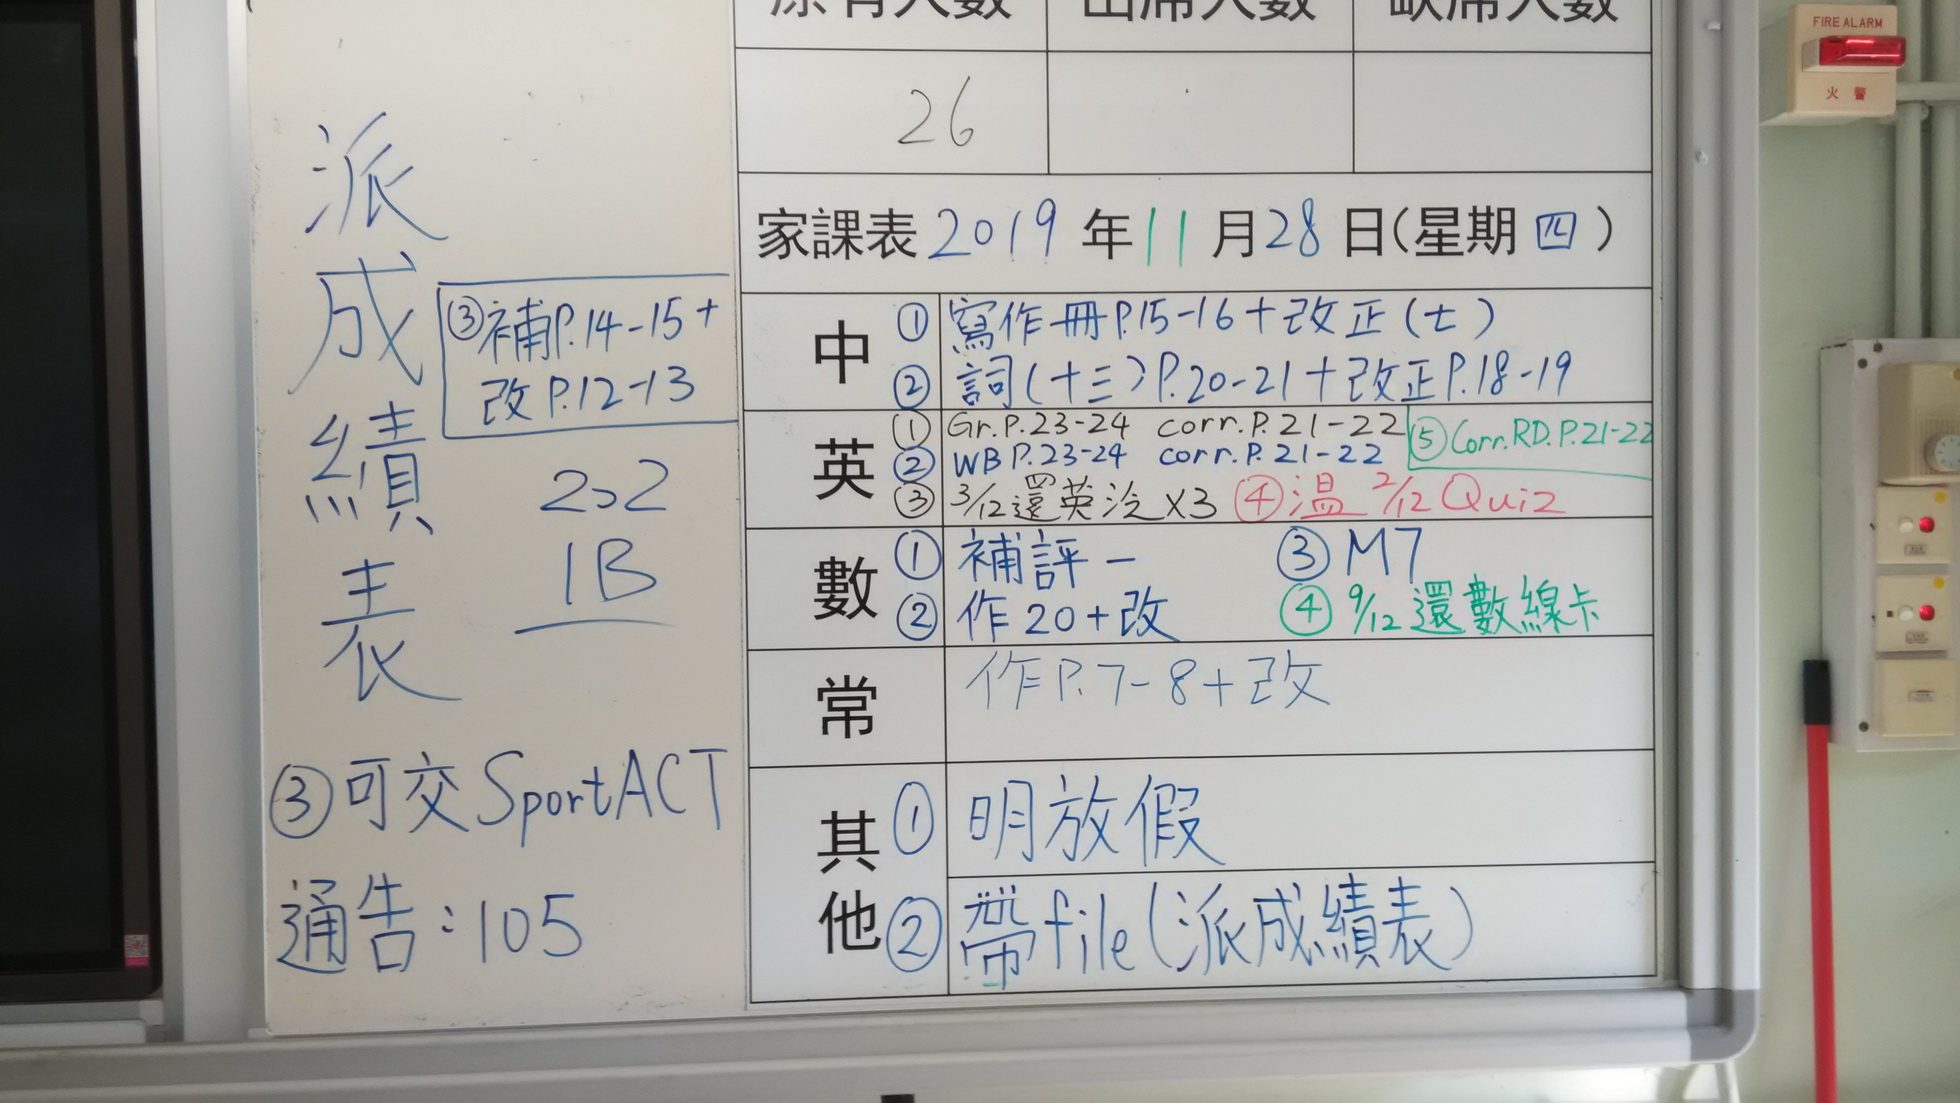 原有人數 出席人數 缺席人數
26
家課表 2019 年 11 月 28 日(星期 四)
派成績表
③補P.14-15+
改P.12-13
202
1B
③可交SportACT
通告:105
中 ①寫作冊P.15-16+改正(七)
②詞(十三)P.20-21+改正P.18-19
英 ①Gr.P.23-24 corr.P.21-22 ⑤Corr.RD.P.21-22
②WB P.23-24 corr.P.21-22
③3/12還英汔X3 ④溫2/12 Quiz
數 ①補評一 ③M7
②作20+改 ④9/12還數線卡
常 作P.7-8+改
其他 ①明放假
②帶file(派成績表)
FIRE ALARM
火警